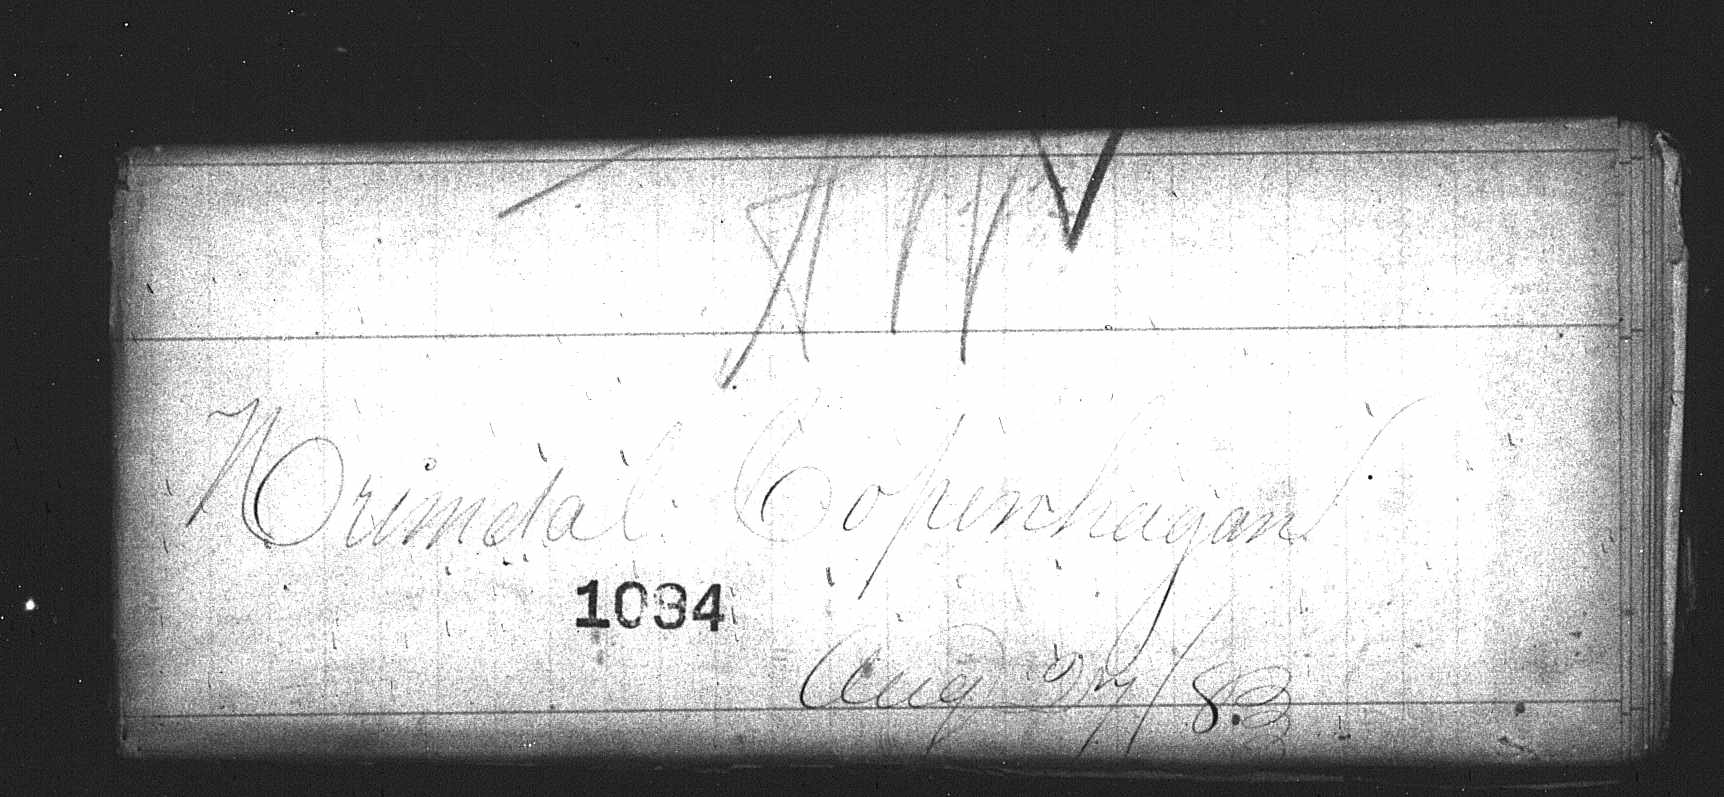 Norimdal Copenhagan
1034
Aug 27/83